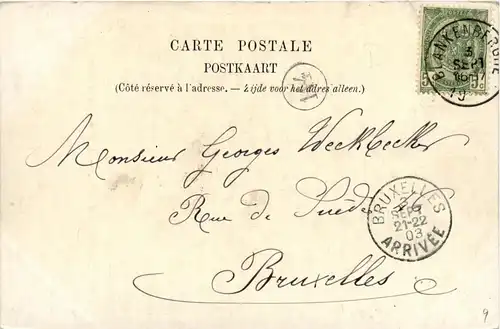 CARTE POSTALE
POSTKAART
(Côté réservé à l'adresse. — Zijde voor het adres alleen.)
BLANKENBERGHE
3
SEPT
Monsieur Georges Weckbecker
Rue de Suède 46
Bruxelles
BRUXELLES
3
SEPT
21-22
03
ARRIVÉE
9